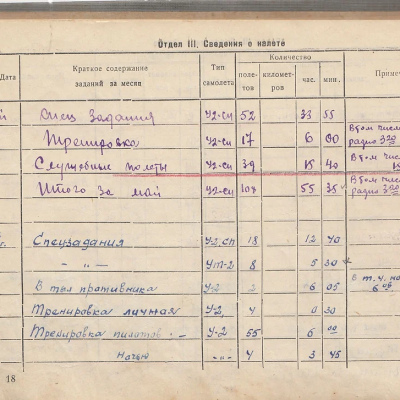 Отдел III. Сведения о налёте
Дата
Краткое содержание заданий за месяц
Тип самолета
Количество
полетов
километров
час.
мин.
Примеч
Спец задания У2-сп 52 33 55
Тренировка У2-сп 17 6 00 В том числе радио 3 20
Служебные полеты У2-сп 39 15 40 В том числе
Итого за май У2-сп 108 55 35 В том числе радио 3 20
Спецзадания У-2 сп 18 12 40
-„- УТ-2 8 5 30
В тыл противника У-2 2 6 05 В т.ч. но 6 05
Тренировка личная У-2, 4 0 30
Тренировка пилотов - У-2 55 6 00
ночью -„- 4 3 45
18